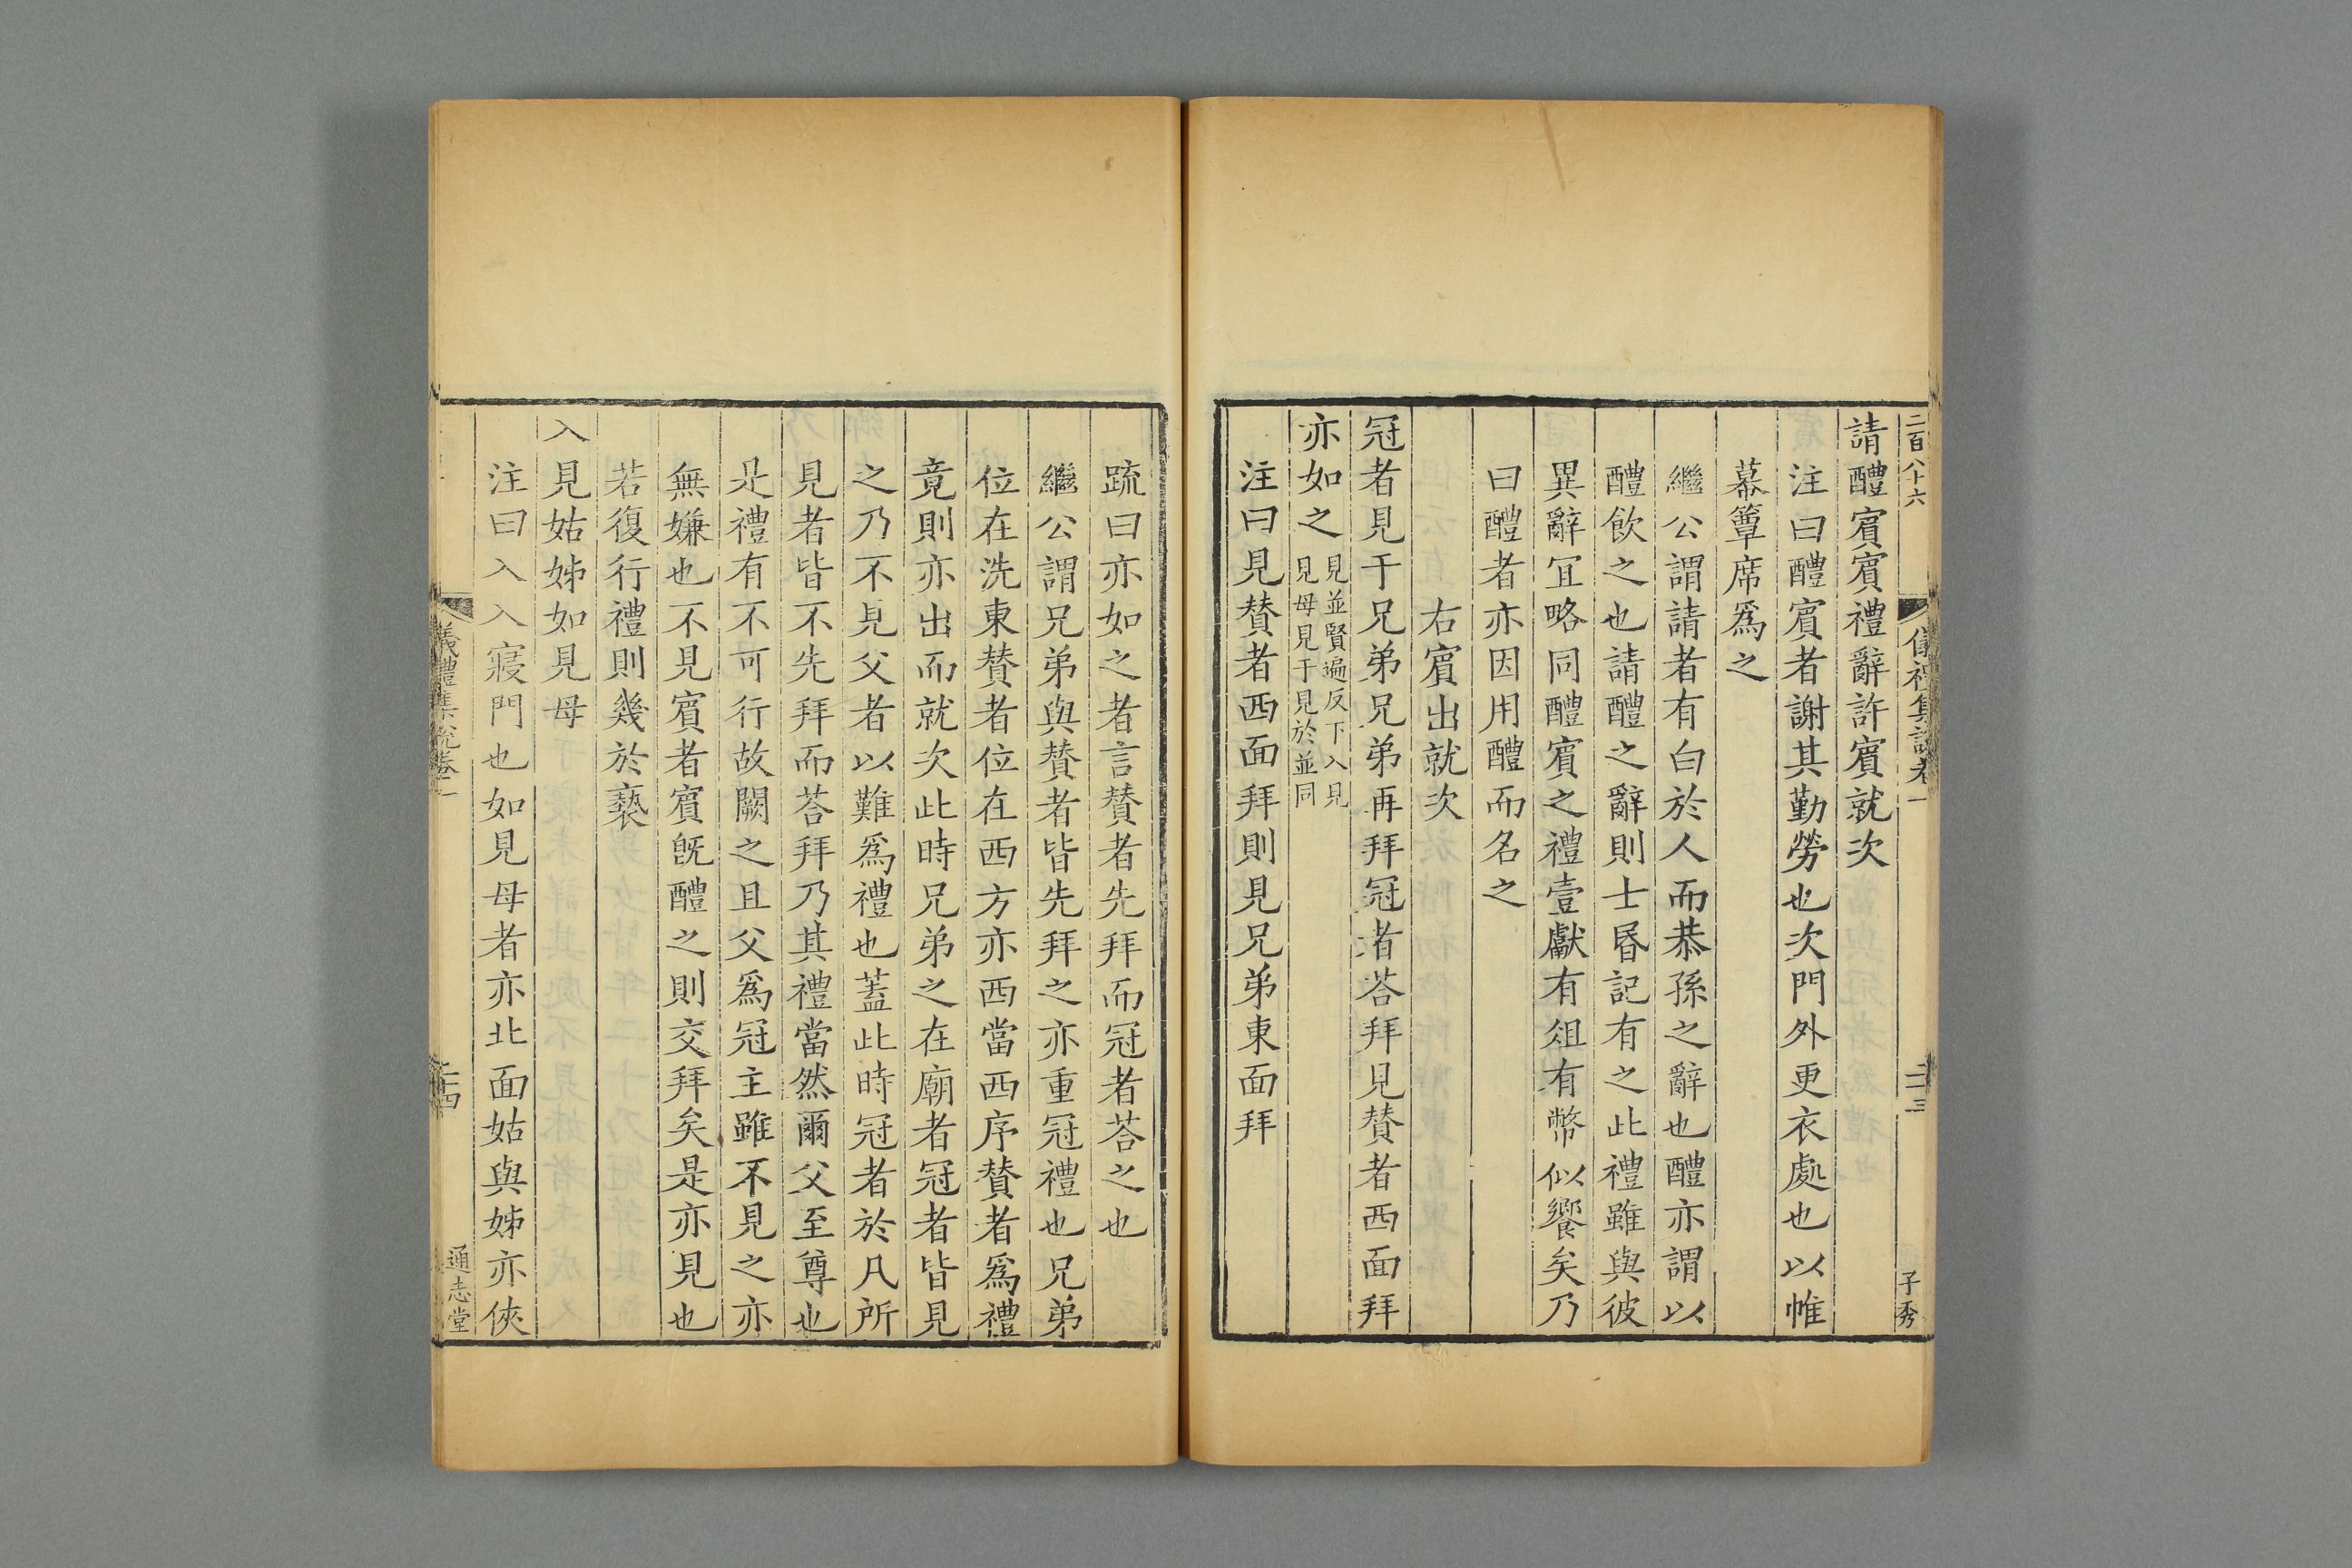 二百八十六
儀禮集說卷一
二十三
子秀
請醴賓賓禮辭許賓就次
注曰醴賓者謝其勤勞也次門外更衣處也以帷
幕簟席爲之
繼公謂請者有白於人而恭孫之辭也醴亦謂以
醴飲之也請醴之辭則士昬記有之此禮雖與彼
異辭冝略同醴賓之禮壹獻有俎有幣似饗矣乃
曰醴者亦因用醴而名之
右賓出就次
冠者見于兄弟兄弟再拜冠者荅拜見賛者西面拜
亦如之見並賢遍反下入見見母見于見於並同
注曰見賛者西面拜則見兄弟東面拜
疏曰亦如之者言賛者先拜而冠者荅之也
繼公謂兄弟與賛者皆先拜之亦重冠禮也兄弟
位在洗東賛者位在西方亦西當西序賛者爲禮
竟則亦出而就次此時兄弟之在廟者冠者皆見
之乃不見父者以難爲禮也蓋此時冠者於凡所
見者皆不先拜而荅拜乃其禮當然爾父至尊也
是禮有不可行故闕之且父爲冠主雖不見之亦
無嫌也不見賓者賓旣醴之則交拜矣是亦見也
若復行禮則幾於褻
入見姑姊如見母
注曰入入寢門也如見母者亦北面姑與姊亦俠
儀禮集說卷一
二十四
通志堂